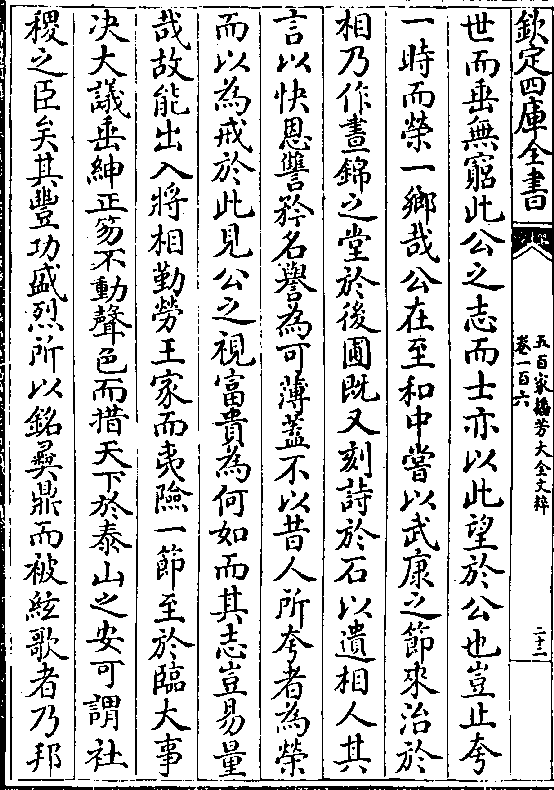 欽定四庫全書
五百家播芳大全文粹
卷一百六
二十三
世而垂無窮此公之志而士亦以此望於公也豈止夸
一時而榮一鄉哉公在至和中嘗以武康之節來治於
相乃作晝錦之堂於後圃既又刻詩於石以遺相人其
言以快恩讐矜名譽為可薄蓋不以昔人所夸者為榮
而以為戒於此見公之視富貴為何如而其志豈易量
哉故能出入將相勤勞王家而夷險一節至於臨大事
決大議垂紳正笏不動聲色而措天下於泰山之安可謂社
稷之臣矣其豐功盛烈所以銘彛鼎而被絃歌者乃邦